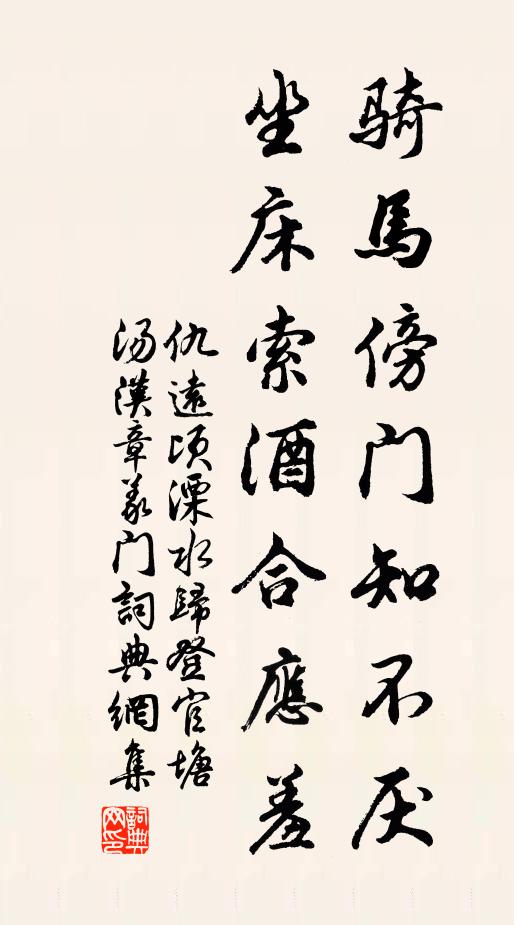 騎馬傍門知不厌
坐床索酒合應羞
仇遠頃溧水歸登官塘
湯漢章義門詞典網集
詞典